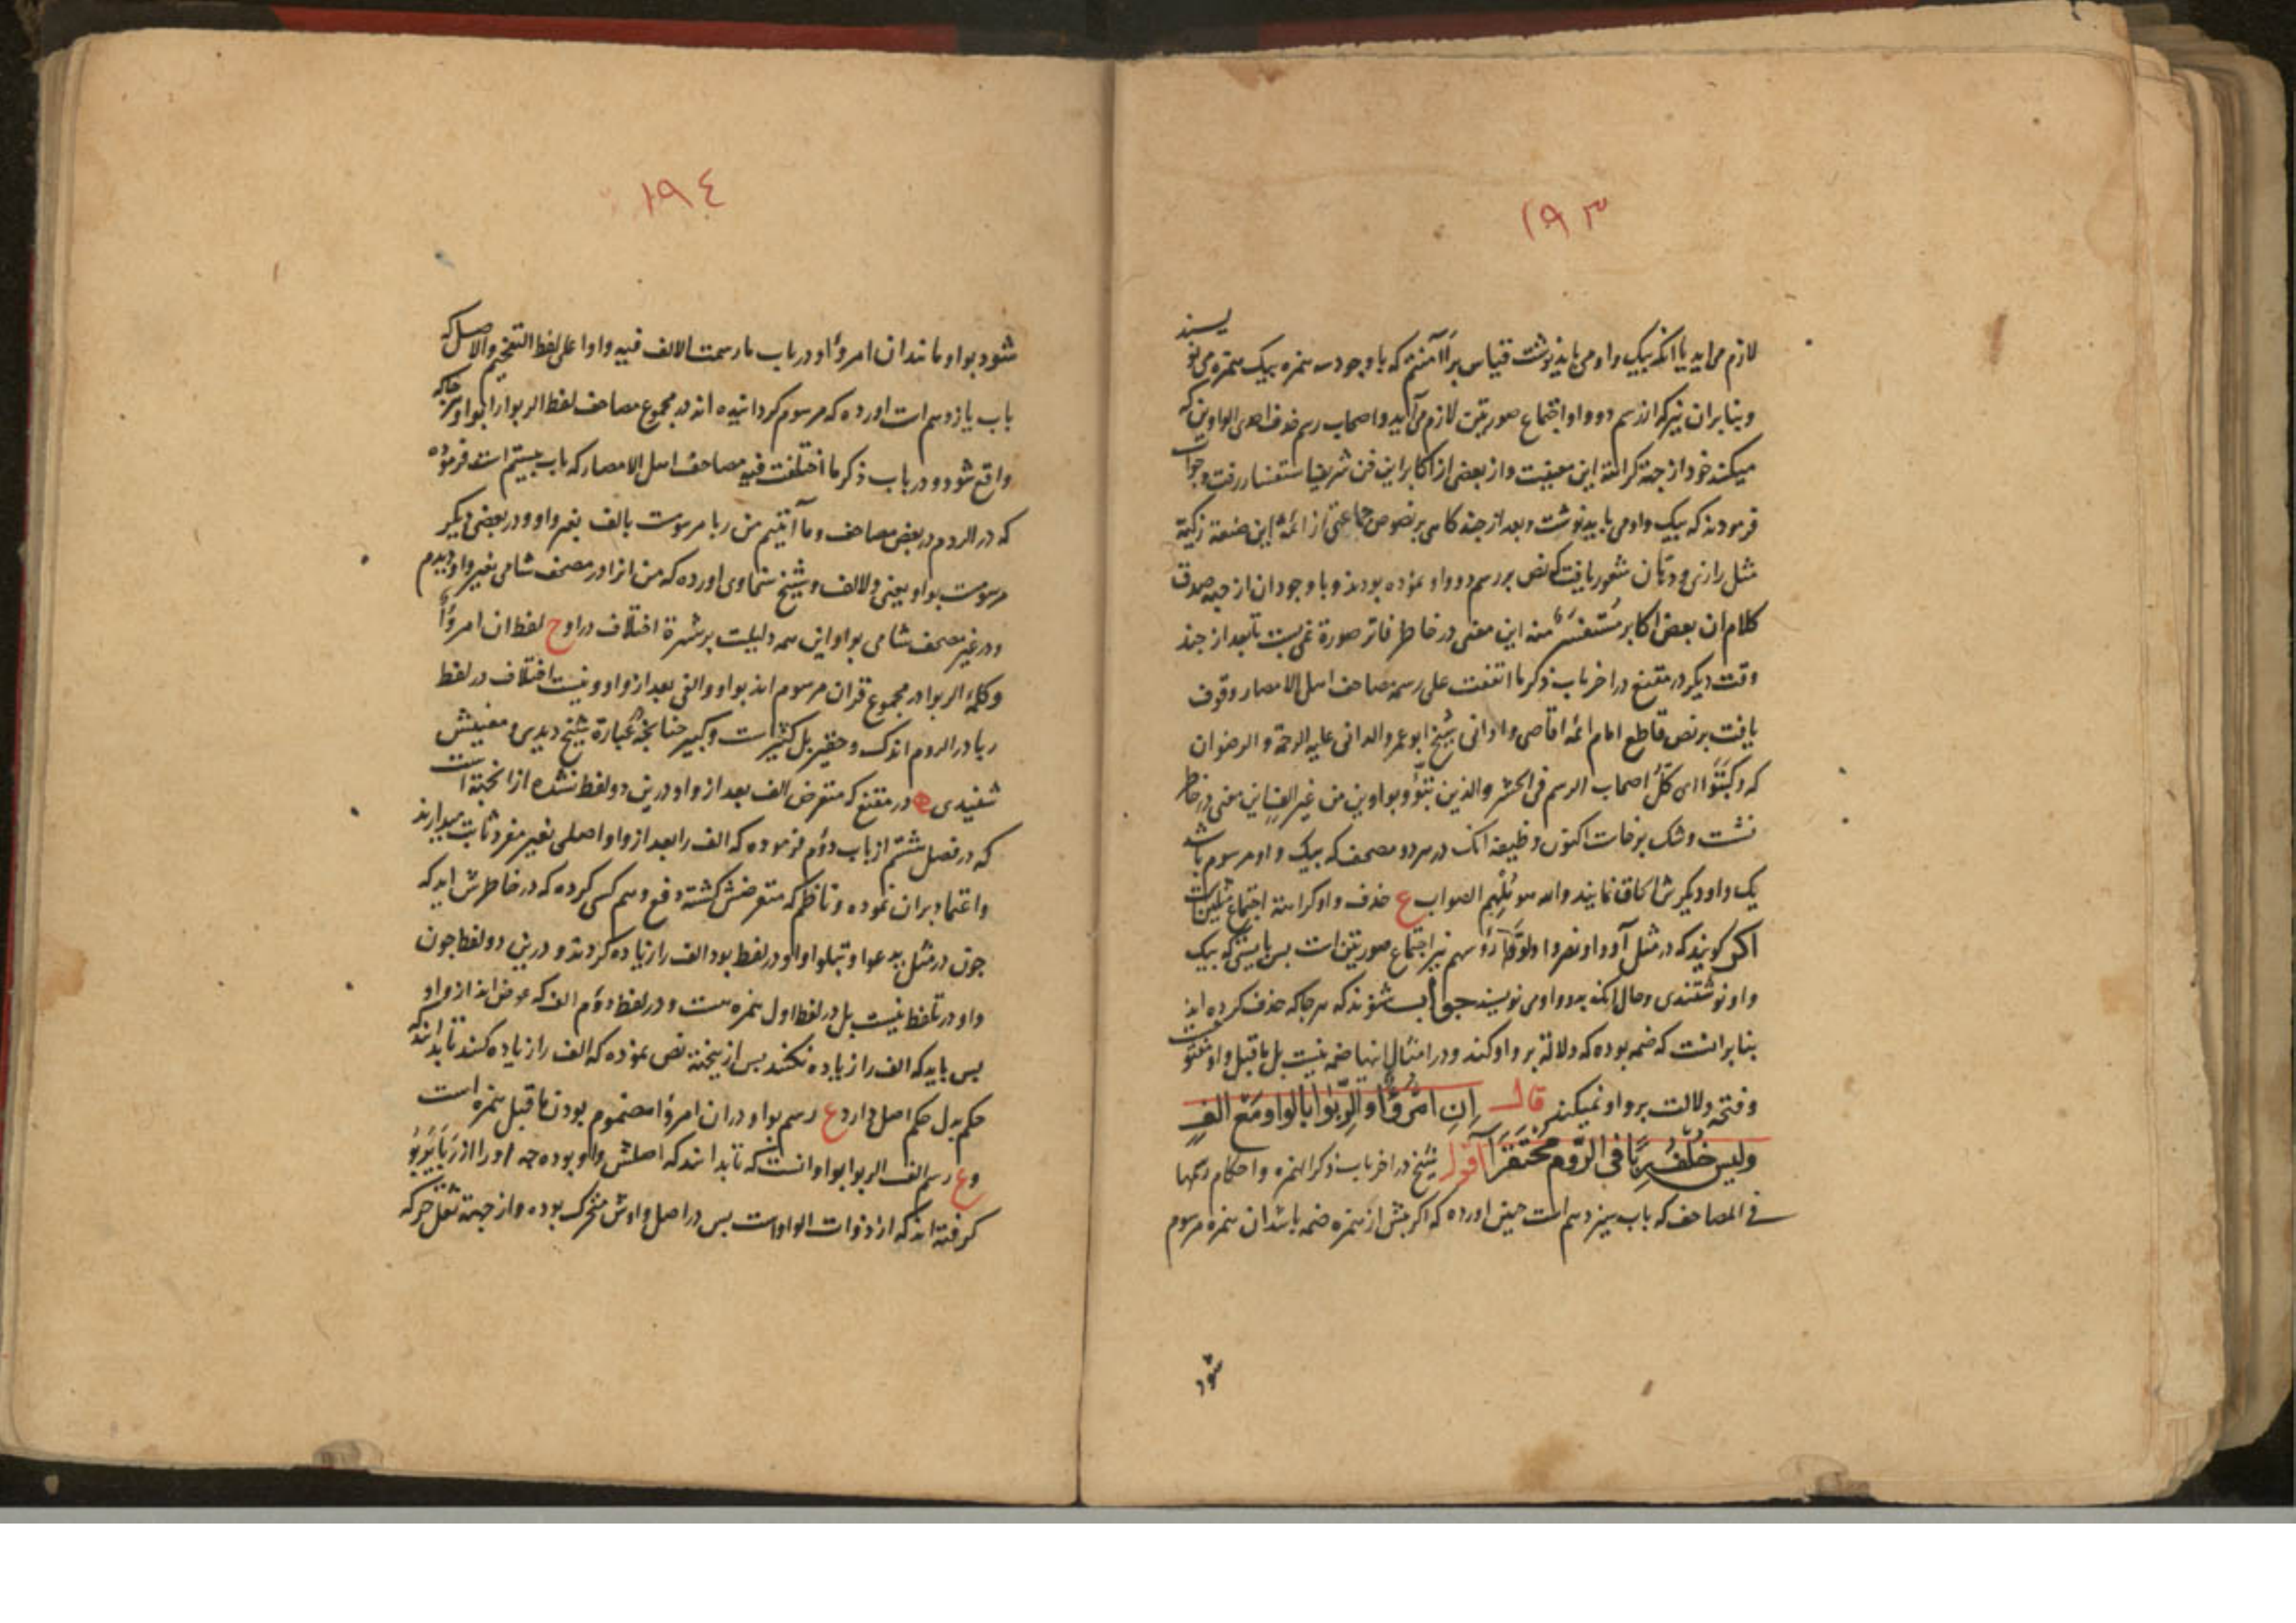 ١٩٣
لازم می اید یا انکه بیک واو می باید نوشت قیاس بر ءآمنتم که با وجود سه همزه بیک همزه می نو
یسند
وبنابران نیز که از رسم دو واو اجتماع صورتین لازم می آید واصحاب رسم حذف احدی الواوین که
میکنند خود از جهة کراهة این معنیست واز بعضی از اکابر این فن شریف استفسار رفت وجواب
فرمودند که بیک واو می باید نوشت وبعد از چند کاهی بر نصوص جماعتی از ائمه این صنعة زکیة
مثل رازی ودانی شعور یافت که نص بر رسم دو واو نموده بودند وبا وجود ان از جهة صدق
کلام ان بعض اکابر مستفسر منه این معنی در خاطر فاتر صورة نمی بست تا بعد از چند
وقت دیکر در مقنع در اخر باب ذکر ما اتفقت علی رسمه مصاحف اهل الامصار وقوف
یافت بر نص قاطع امام ائمه اقاصی وادانی شیخ ابو عمرو الدانی علیه الرحمة والرضوان
که وکتبوا ای کل اصحاب الرسم فی الحشر والذین تبوؤ بواوین من غیر الف این معنی در خاطر
نشست وشک برخاست اکنون وظیفه انک در هر دو مصحف که بیک واو مرسوم باشد
یک واو دیکرش الحاق نمایند والله هو یلهم الصواب ع حذف واو کراهة اجتماع مثلین است
اکر کویند که در مثل آووا ونصروا ولووا رؤسهم نیز اجتماع صورتین است پس بایستی که بیک
واو نوشتندی وحال انکه بدو واو می نویسند جواب شنوند که هر جا که حذف کرده اند
بنابر انست که ضمه بوده که دلالة بر واو کند ودر امثال اینها ضمه نیست بل ما قبل واو مفتوحست
وفتحه دلالت بر واو نمیکند قال ان امرؤا والربوا بالواو مع الف
ولیس خلف ربا فی الروم محتقرا اقول شیخ در اخر باب ذکر الهمزه واحکام رسمها
فی المصاحف که باب سیزدهم است چنین اورده که اکر پیش از همزه ضمه باشد ان همزه مرسوم
شود
١٩٤
شود بواو مانند ان امرؤا ودر باب ما رسمت الالف فیه واوا علی لفظ التفخیم والاصل که
باب یازدهم است اورده که مرسوم کردانیده اند در مجموع مصاحف لفظ الربوا را بواو هر جا که
واقع شود ودر باب ذکر ما اختلفت فیه مصاحف اهل الامصار که باب بیستم است فرموده
که در الروم در بعض مصاحف وما آتیتم من ربا مرسومست بالف بغیر واو ودر بعضی دیکر
مرسومست بواو یعنی ولالف وشیخ سخاوی اورده که من انرا در مصحف شامی بغیر واو دیدم
ودر غیر مصحف شامی بواو این همه دلیلست بر شهرة اختلاف در او ح لفظ ان امرؤا
وکلمه الربوا در مجموع قران مرسوم اند بواو والفی بعد از واو ونیست اختلاف در لفظ
ربا در الروم اندک وحقیر بل کثیر است وکبیر چنانچه عبارة شیخ دیدی ومعنیش
شنیدی ه در مقنع که متعرض الف بعد از واو درین دو لفظ نشده از انجهة است
که در فصل ششم از باب دوم فرموده که الف را بعد از واو اصلی بغیر مفرد ثابت میدارند
واعتماد بران نموده وناظم که متعرضش کشته دفع وهم کسی کرده که در خاطرش اید که
چون در مثل یدعوا وتبلوا واو در لفظ بود الف را زیاده کردند ودرین دو لفظ چون
واو در تلفظ نیست بل در لفظ اول همزه هست ودر لفظ دوم الف که عوض اند از واو
پس باید که الف را زیاده نکنند پس از ینجهة نص نموده که الف را زیاده کنند تا بدانند که
حکم بدل حکم اصل دارد ع رسم بواو در ان امرؤا مضموم بودن ما قبل همزه است
وع رسم الف الربوا بواو انست که تا بدانند که اصلش واو بوده چه او را از ربا یربو
کرفته اند که از ذوات الواو است پس در اصل واوش متحرک بوده واز جهة ثقل حرکه